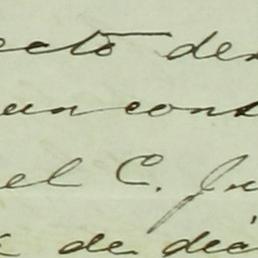 ecto de
un cons
el C. Ju
de diá